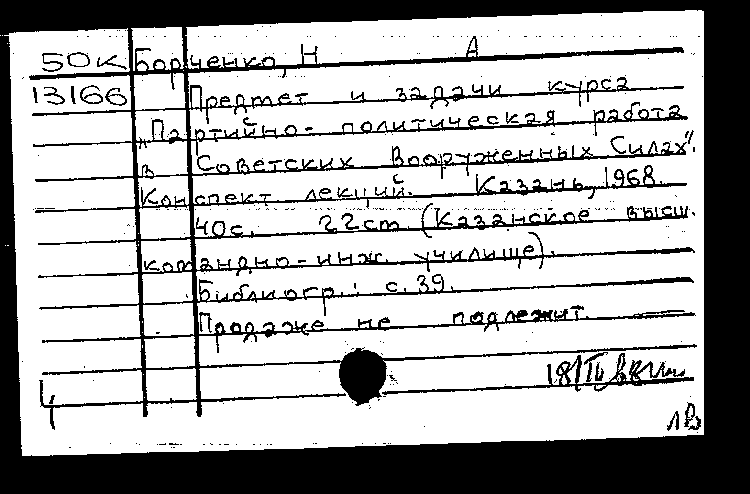 50к Борченко, Н А
13166 Предмет и задачи курса
"Партийно-политическая работа
в Советских Вооруженных Силах".
Конспект лекций. Казань, 1968.
40с. 22cm (Казанское высш.
командно-инж. училище).
Библиогр.: с. 39.
Продаже не подлежит.
4
лв